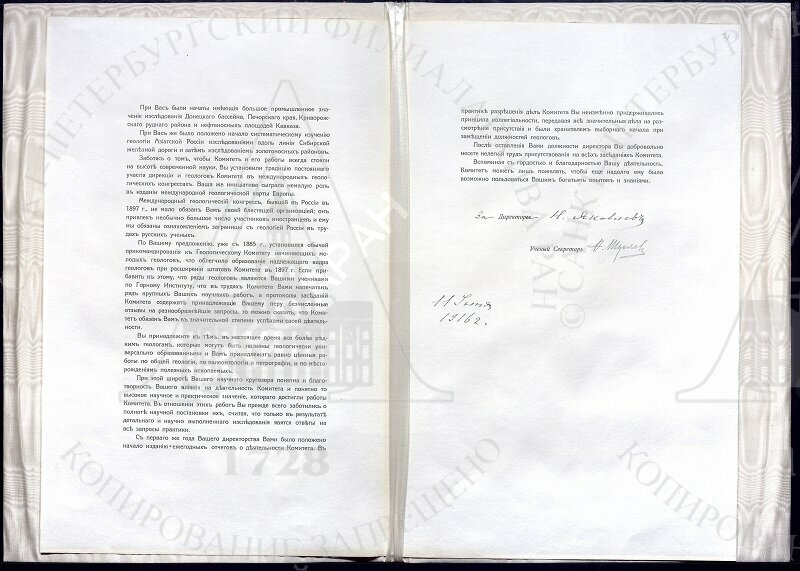 При Васъ были начаты имѣющія большое промышленное зна-
ченіе изслѣдованія Донецкаго бассейна, Печорскаго края, Криворож-
скаго руднаго района и нефтеносныхъ площадей Кавказа.
При Васъ же было положено начало систематическому изученію
геологіи Азіатской Россіи изслѣдованіями вдоль линіи Сибирской
желѣзной дороги и затѣмъ изслѣдованіемъ золотоносныхъ районовъ.
Заботясь о томъ, чтобы Комитетъ и его работы всегда стояли
на высотѣ современной науки, Вы установили традицію постояннаго
участія дирекціи и геологовъ Комитета въ международныхъ геоло-
гическихъ конгрессахъ. Ваша же иниціатива сыграла немалую роль
въ изданіи международной геологической карты Европы.
Международный геологическій конгрессъ, бывшій въ Россіи въ
1897 г., не мало обязанъ Вамъ своей блестящей организаціей; онъ
привлекъ необычно большое число участниковъ иностранцевъ и ему
мы обязаны ознакомленіемъ заграницы съ геологіей Россіи въ тру-
дахъ русскихъ ученыхъ.
По Вашему предложенію, уже съ 1885 г., установился обычай
прикомандированія къ Геологическому Комитету начинающихъ мо-
лодыхъ геологовъ, что облегчило образованіе надлежащаго кадра
геологовъ при расширеніи штатовъ Комитета въ 1897 г. Если при-
бавить къ этому, что ряды геологовъ являются Вашими учениками
по Горному Институту, что въ трудахъ Комитета Вами напечатанъ
рядъ крупныхъ Вашихъ научныхъ работъ, а протоколы засѣданій
Комитета содержатъ принадлежащіе Вашему перу безчисленные
отзывы на разнообразнѣйшіе запросы, то можно сказать, что Коми-
тетъ обязанъ Вамъ въ значительной степени успѣхами своей дѣятель-
ности.
Вы принадлежите къ тѣмъ, въ настоящее время все болѣе рѣд-
кимъ геологамъ, которые могутъ быть названы геологически уни-
версально образованными и Вамъ принадлежатъ равно цѣнныя ра-
боты по общей геологіи, по палеонтологіи и петрографіи, и по мѣсто-
рожденіямъ полезныхъ ископаемыхъ.
При этой широтѣ Вашего научнаго кругозора понятна и благо-
творность Вашего вліянія на дѣятельность Комитета и понятно то
высокое научное и практическое значеніе, котораго достигли работы
Комитета. Въ отношеніи этихъ работъ Вы прежде всего заботились о
полнотѣ научной постановки ихъ, считая, что только въ результатѣ
детальнаго и научно выполненнаго изслѣдованія явятся отвѣты на
всѣ запросы практики.
Съ перваго же года Вашего директорства Вами было положено
начало изданію ежегодныхъ отчетовъ о дѣятельности Комитета. Въ
практикѣ разрѣшенія дѣлъ Комитета Вы неизмѣнно придерживались
принципа коллегіальности, передавая всѣ значительныя дѣла на раз-
смотрѣніе присутствія и были хранителемъ выборнаго начала при
замѣщеніи должностей геологовъ.
Послѣ оставленія Вами должности директора Вы добровольно
несете нелегкій трудъ присутствованія на всѣхъ засѣданіяхъ Комитета.
Вспоминая съ гордостью и благодарностью Вашу дѣятельность,
Комитетъ можетъ лишь пожелать, чтобы еще надолго ему было
возможно пользоваться Вашимъ богатымъ опытомъ и знаніями.
За Директора Н. Яковлевъ
Ученый Секретарь
11 Іюня
1916 г.
ПЕТЕРБУРГСКИЙ ФИЛИАЛ
АРХИВА РАН ©
1728
КОПИРОВАНИЕ ЗАПРЕЩЕНО
КОПИРОВАНИЕ